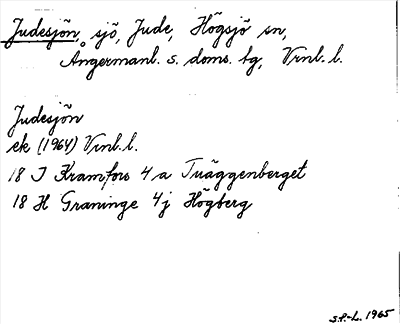 Judesjön, sjö, Jude, Högsjö sn,
Ångermanl. s. doms. tg, Vrnl. l.
Judesjön
ek (1964) Vrnl. l.
18 I Kramfors 4 a Tväggenberget
18 H Graninge 4j Högberg
S.P.-L. 1965